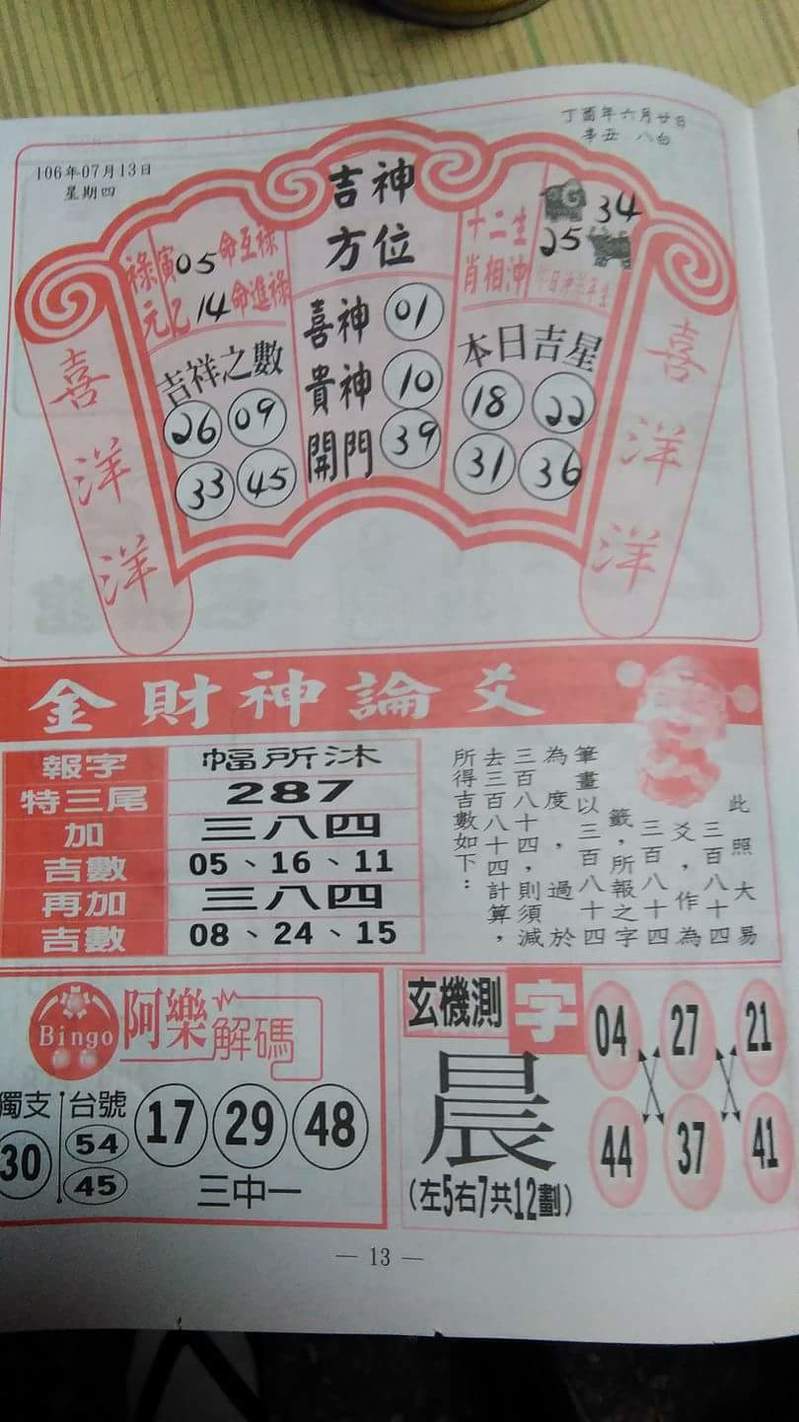 106年07月13日
星期四
丁酉年六月廿日
辛丑 八白
吉神
方位
祿元
寅05命互祿
乙14命進祿
吉祥之數
26 09
33 45
喜神 01
貴神 10
開門 39
十二生
肖相沖
34
25
本日吉星
18 22
31 36
喜洋洋
喜洋洋
金財神論爻
報字 幅所沐
特三尾 287
加 三八四
吉數 05、16、11
再加 三八四
吉數 08、24、15
此照大易
三百八十四
爻，作為
三百八十四
籤，所報之字
筆畫以三百八十四
為度，過於
三百八十四，則須減
去三百八十四計算，
所得吉數如下：
Bingo 阿樂解碼
獨支 台號
30 54 45
17 29 48
三中一
玄機測字
晨
(左5右7共12劃)
04 27 21
44 37 41
— 13 —